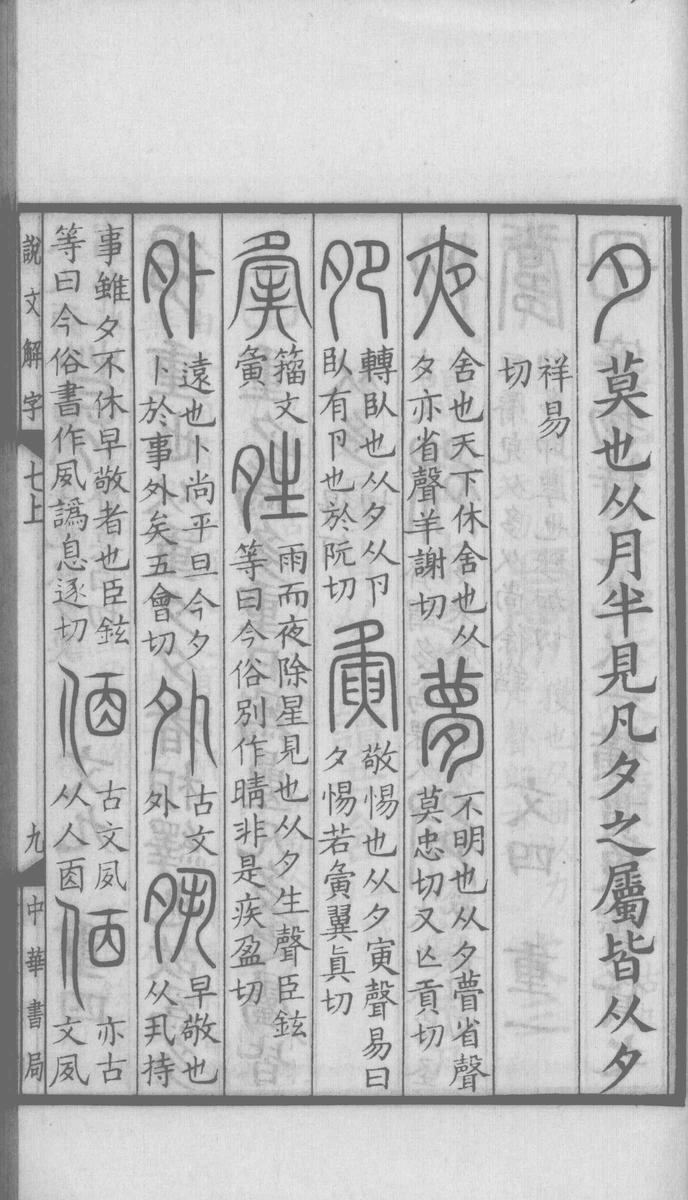 夕莫也从月半見凡夕之屬皆从夕
祥易
切
夜舍也天下休舍也从
夕亦省聲羊謝切
夢不明也从夕瞢省聲
莫忠切又亾貢切
夗轉臥也从夕从卪
臥有卪也於阮切
夤敬惕也从夕寅聲易曰
夕惕若夤翼眞切
籒文
夤
夝雨而夜除星見也从夕生聲臣鉉
等曰今俗別作晴非是疾盈切
外遠也卜尚平旦今夕
卜於事外矣五會切
古文
外
𡖊早敬也
从丮持
事雖夕不休早敬者也臣鉉
等曰今俗書作夙譌息逐切
㑉古文夙
从人㐁
𠈇亦古
文夙
說文解字
七上
九
中華書局